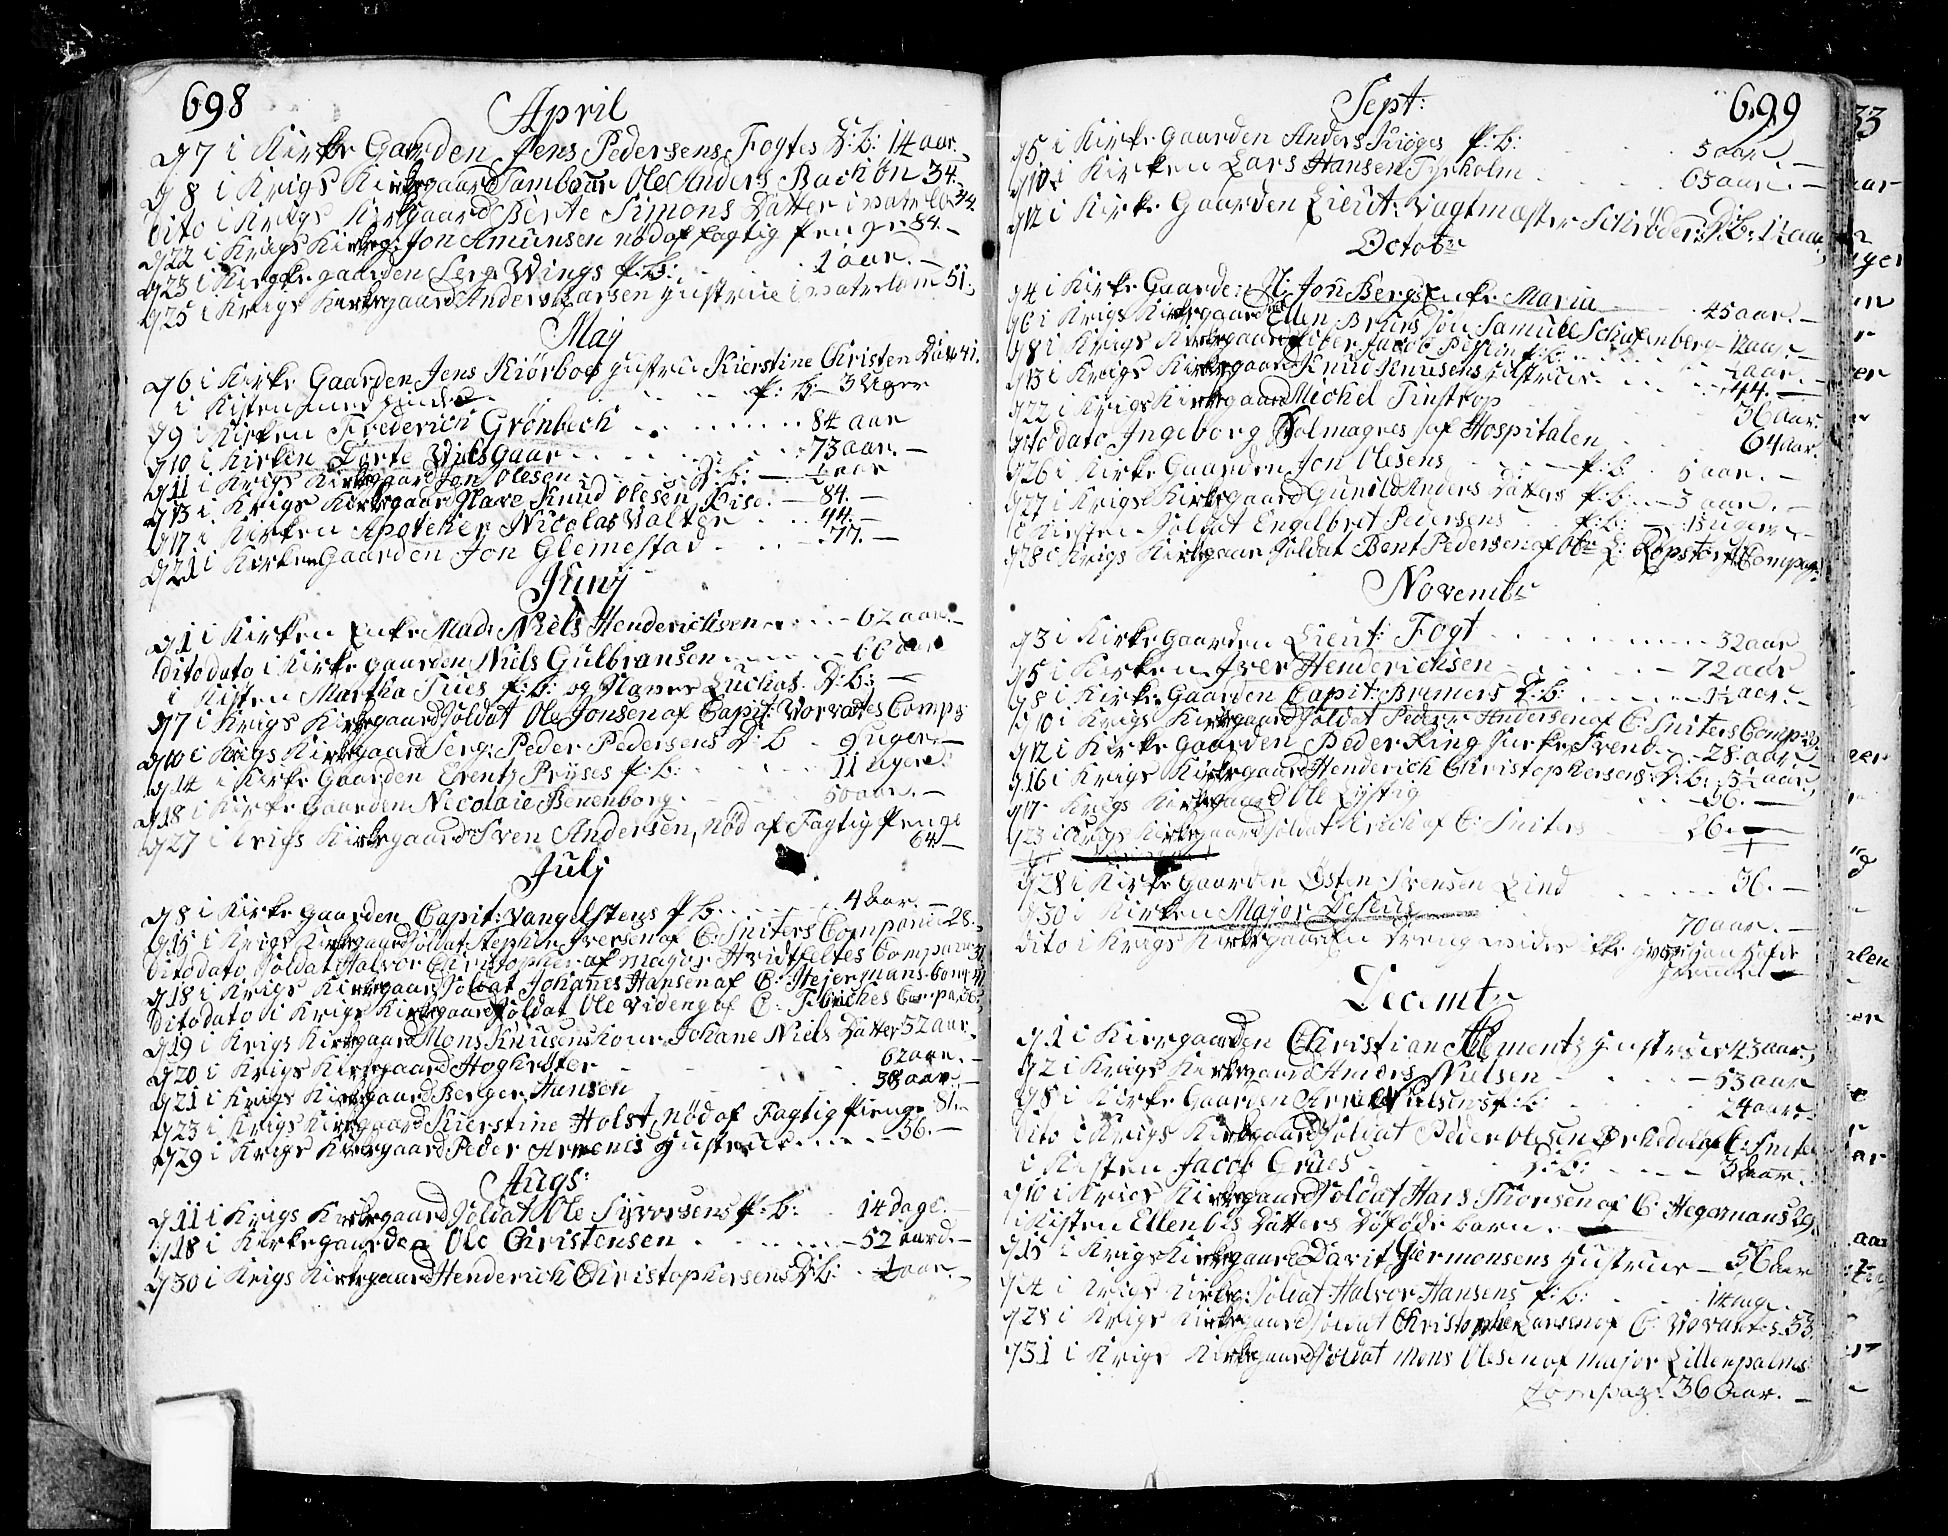 698
April
d 7 i Kirke Gaarden Jens Pedersens Fogtes D: b: 14 aar. –
d 8 i Krigs Kirkegaard Tambour Ole Anders Bachøn 34. –
Dito i Krigs Kirkgaard Berte Simons Datter 34.
d 22 i Krigs Kirkeg: Jon Amunsen nød af fagtig Penge 84. –
d 23 i Kirke gaarden Serg: Wings P: b: 1 aar. –
d 25 i Krigs Kirkegaard Anders Larsen Hustrue 51.
Maj
d 6 i Kirke Gaarden Jens Kiørboes Hustru Kierstine Christen Dat: 41.
i Kisten med hende P: b: – 3 Uger
d 9 i Kirken Frederich Grønbech 84 aar
d 10 i Kirken Dorte Nielsgaar 73 aar. –
d 11 i Krigs Kirkegaard Jon Olesen D: b: – 1 aar
d 13 i Krigs Kirkegaar Knud Olesen Rise: – 84. –
d 17 i Kirken Apoteker Nicolas Valter 44. –
d 21 i Kirke Gaarden Jon Glemestad 77. –
Junij
d 1 i Kirken Enke Mad: Niels Henderichsen 62 aar. –
Dito dato i Kirke gaarden Niels Gulbransen 66 aar
i Kisten Martha Tues P: b: og Luckas D: b: –
d 7 i Krigs Kirkegaard Soldat Ole Jonsen af Capit: Vorvates Comp:
d 10 i Krigs Kirkegaard Serg: Peder Pedersens D: b 9 uger –
d 14 i Kirke Gaarden Erentz Pryses P: b: 11 uger
d 18 i Kirke Gaarden Nicolaie Benenborg 50 aar. –
d 27 i Krigs Kirkegaard Sven Andersen, nød af Fagtig Penge
64 –
Julj
d 8 i Kirke gaarden Capit: Vangelstens P b: 4 aar. –
d 15 i Krigs Kirkegaard Soldat Stephen Iversen af C: Sniters Compani 28.
Dito dato Soldat Halvor Christopher af Major Hvidtfeltes Compani
d 18 i Krigs Kirkegaar Soldat Johanes Hansen af C: Hejermans Comp:
Dito dato i Krigs Kirkegaard Soldat Ole Videng af C: Compa:
d 19 i Krigs Kirkegaard Mons Knusens Kone Johane Niels Datter 52 aar.
d 20 i Krigs Kirkegaard 62 aar. –
d 21 i Krigs Kirkegaard Berger Hansen 58 aar. –
d 23 i Krigs Kirkegaard Kierstine Holst, nød af Fagtig Penge 81. –
d 29 i Krigs Kirkegaard Peder Hustrue 36. –
Augs:
d 11 i Krigs Kirkegaard Soldat Ole Syversens P: b: 14 dage. –
d 18 i Kirkegaarden Ole Christensen 52 aar. –
d 30 i Krigs Kirkegaard Henderich Christophersens D: b: 1 aar. –
699
Sept:
d 5 i Kirke Gaarden Anders Kiøges P: b: 5 aar. –
d 10 i Kirken Lars Hansen Tyrholm 65 aar. –
d 12 i Kirke Gaarden Lieut: Vagtmæster Schrøders D: b: 1½ aar
Octobr
d 4 i Kirke Gaarde: Jon Bergs Enke Maria 45 aar. –
d 6 i Krigs Kirkegaard Ellen Bruns Søn Samuel Schafenberg 12 aar. –
d 8 i Krigs Kirkegaard Jacob P: b: 1 aar. –
d 13 i Krigs Kirkegaard Knud Knusens Hustrue 44. –
d 22 i Krigs Kirkegaard Michel Tinstrop 36 aar.
dito dato Ingeborg Holmagres af Hospitalen 64 aar.
d 26 i Kirke Gaarden Jon Olesens P: b 5 aar. –
d 27 i Krigs Kirkegaard Gunild Anders Datters P: b: 3 aar. –
i Kirsten Soldat Engelbret Pedersens P: b: – 13 uger –
d 28 i Krigs Kirkegaar Soldat Bent Pedersen af Ob: L: Repstorfs Compag:
Novembr
d 3 i Kirke Gaarden Lieut: Fogt 32 aar
d 5 i Kirken Iver Henderichsen 72 aar
d 8 i Kirke Gaarden Capit: Bremers D: b: 1½ aar. –
d 10 i Krigs Kirkegaard Soldat Peder Andersen af C: Sniters Comp:
d 12 i Kirke Gaarden Peder Ring 28. aar. –
d 16 i Krigs Kirkegaard Henderich Christophersens D: b: 3½ aar,
d 17 Krigs Kirkegaard Ole Lystig 36. –
d 23 i Krigs Kirkegaard Soldat Erich af C: Sniters 26. –
d 28 i Kirke Gaarden Østen Svensen Lind 36. –
d 30 i Kirken Major 70 aar. –
dito i Krigs Kirkegaarden Dreng
Decembr
d 1 i Kirregaarden Christian Klementz Hustrues 43 aar. –
d 2 i Krigs Kirkegaard Anders Nielsen 53 aar
d 8 i Kirke Gaarden Arne Nielsens P: b: 24 aar.
Dito i Krigs Kirkegaard Soldat Peder Olesen Ørkedal af C: Snite
i Kisten Jacob Grues D: b: 3 aar. –
d 10 i Krigs Kirkegaard Soldat Hans Thorsen af C: Hegermans 29.
i Kisten Ellen Datters Døføde barn. –
d 15 i Krigs Kirkegaard Davit Hermonsens Hustrue – 56 aar
d 24 i Krigs Kirkeg: Soldat Halvor Hansens P: b: 14 uge.
d 28 i Krigs Kirkegaard Soldat Christopher Larsen af C: Vorvantes 33.
d 31 i Krigs Kirkegaard Soldat Mons Olesen af Major Lillenpalms
Compag: 36 aar. –